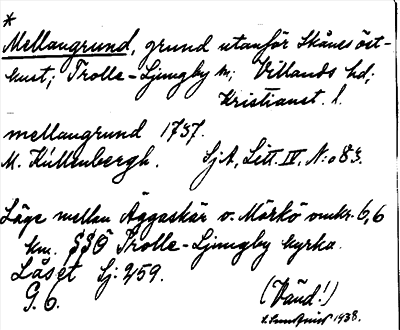 *
Mellangrund, grund utanför Skånes öst-
kust; Trolle-Ljungby sn; Villands hd;
Kristianst. l.
mellangrund 1737.
M. Kullenbergh. SjA, Litt. IV, N:o 83.
Läge mellan Äggaskär o. Mörkö omkr. 6,6
km. SSÖ Trolle-Ljungby kyrka.
Låset Sj: 259.
G. 6.
(Vänd!)
1938.